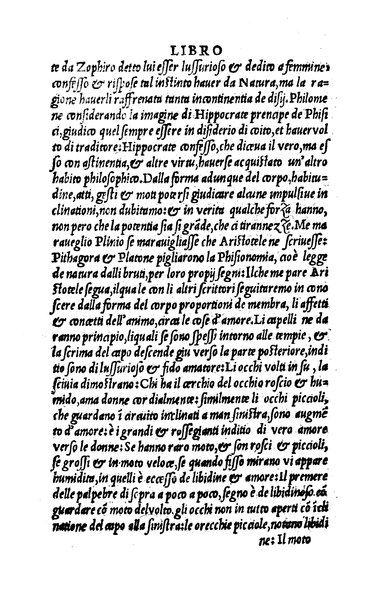 LIBRO
te da Zophiro detto lui esser lussurioso & dedito a femmine:
confesso & rispose tal instinto hauer da Natura, ma la ra-
gione hauerli raffrenata tanta incontinentia de disij. Philome
ne considerando la imagine di Hippocrate prencipe de Phisi
ci, giudico quel sempre essere in disiderio di coito, et hauer uol
to di traditore: Hippocrate confesso, che diceua il uero, ma es
so con astinentia, & altre uirtu, hauerse acquistato un'altro
habito philosophico. Dalla forma adunque del corpo, habitu-
dine, atti, gesti & moti potersi giudicare alcune impulsiue in
clinationi, non dubitamo: & in uerita qualche forza hanno,
non pero che la potentia sia si grãde, che ci tirannezze. Me ma
raueglio Plinio se marauigliasse che Aristotele ne scriuesse:
Pithagora & Platone pigliarono la Phisionomia, cioè legge
de natura dalli bruti, per loro proprij segni: Il che me pare Ari
stotele segua, il quale con li altri scrittori seguitaremo in cono
scere dalla forma del corpo proportioni de membra, li affetti
& concetti dell'animo, circa le cose d'amore. Li capelli ne da
ranno principio, li quali se sono spessi intorno alle tempie, &
la scrima del capo descende giu uerso la parte posteriore, indi
tio sono di lussurioso & fido amatore: Li occhi uolti in su, la
sciuia dimostrano: Chi ha il cerchio del occhio roscio & hu-
mido, ama donne cordialmente: similmente li occhi piccioli,
che guardano ĩ circuito inclinati a man sinistra, sono augmẽ
to d'amore: è i grandi & rosseggianti inditio di uero amore
uerso le donne: Se hanno raro moto, & son rosci & piccioli,
se grossi & in moto veloce, se quando fisso mirano ui appare
humidita, in quelli è eccesso de libidine & amore: Il premere
delle palpebre di sopra a poco a poco, segno è de libidinoso. cõ
guardare cõ moto del uolto. gli occhi non in tutto aperti cõ ĩcli
natione del capo alla sinistra: le orecchie picciole, notano libidi
ne: Il moto